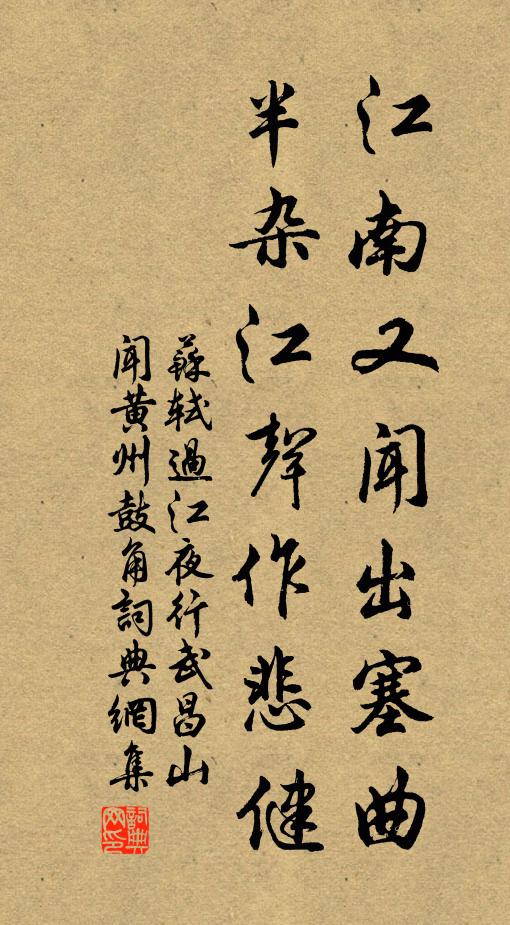 江南又闻出塞曲
半杂江聲作悲健
蘇軾過江夜行武昌山
闻黄州鼓角詞典網集
詞典网印